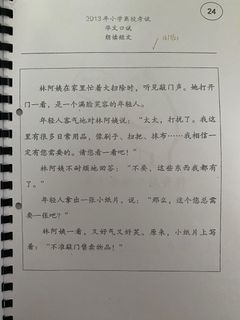 24
2013年小学离校考试
华文口试
朗读短文
林阿姨在家里忙着大扫除时，听见敲门声。她打开
门一看，是一个满脸笑容的年轻人。
年轻人客气地对林阿姨说：“太太，打扰了。我这
里有很多日常用品，像刷子、扫把、抹布……我相信一
定有您需要的。请您看一看吧！”
林阿姨不耐烦地回答：“不要，这些东西我都有
了。”
年轻人拿出一张小纸片，说：“那么，这个您总需
要一张吧？”
林阿姨一看，又好气又好笑。原来，小纸片上写
着：“不准敲门售卖物品！”